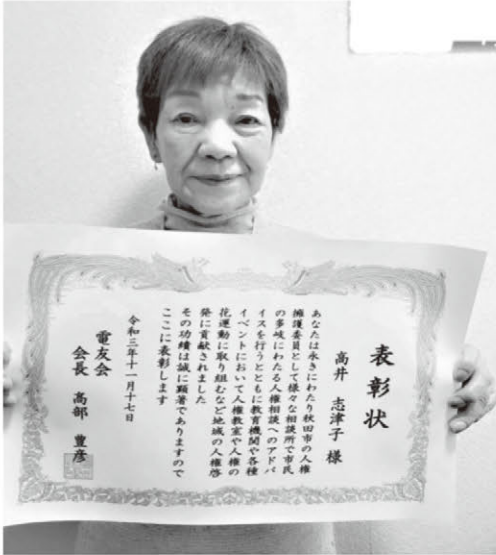 表彰状
高井　志津子　様
あなたは永きにわたり秋田市の人権
擁護委員として様々な相談所で市民
の多岐にわたる人権相談へのアドバ
イスを行うとともに教育機関や各種
イベントにおいて人権教室や人権の
花運動に取り組むなど地域の人権啓
発に貢献されました
その功績は誠に顕著でありますので
ここに表彰します
令和三年十一月十七日
電友会
会長　高部　豊彦